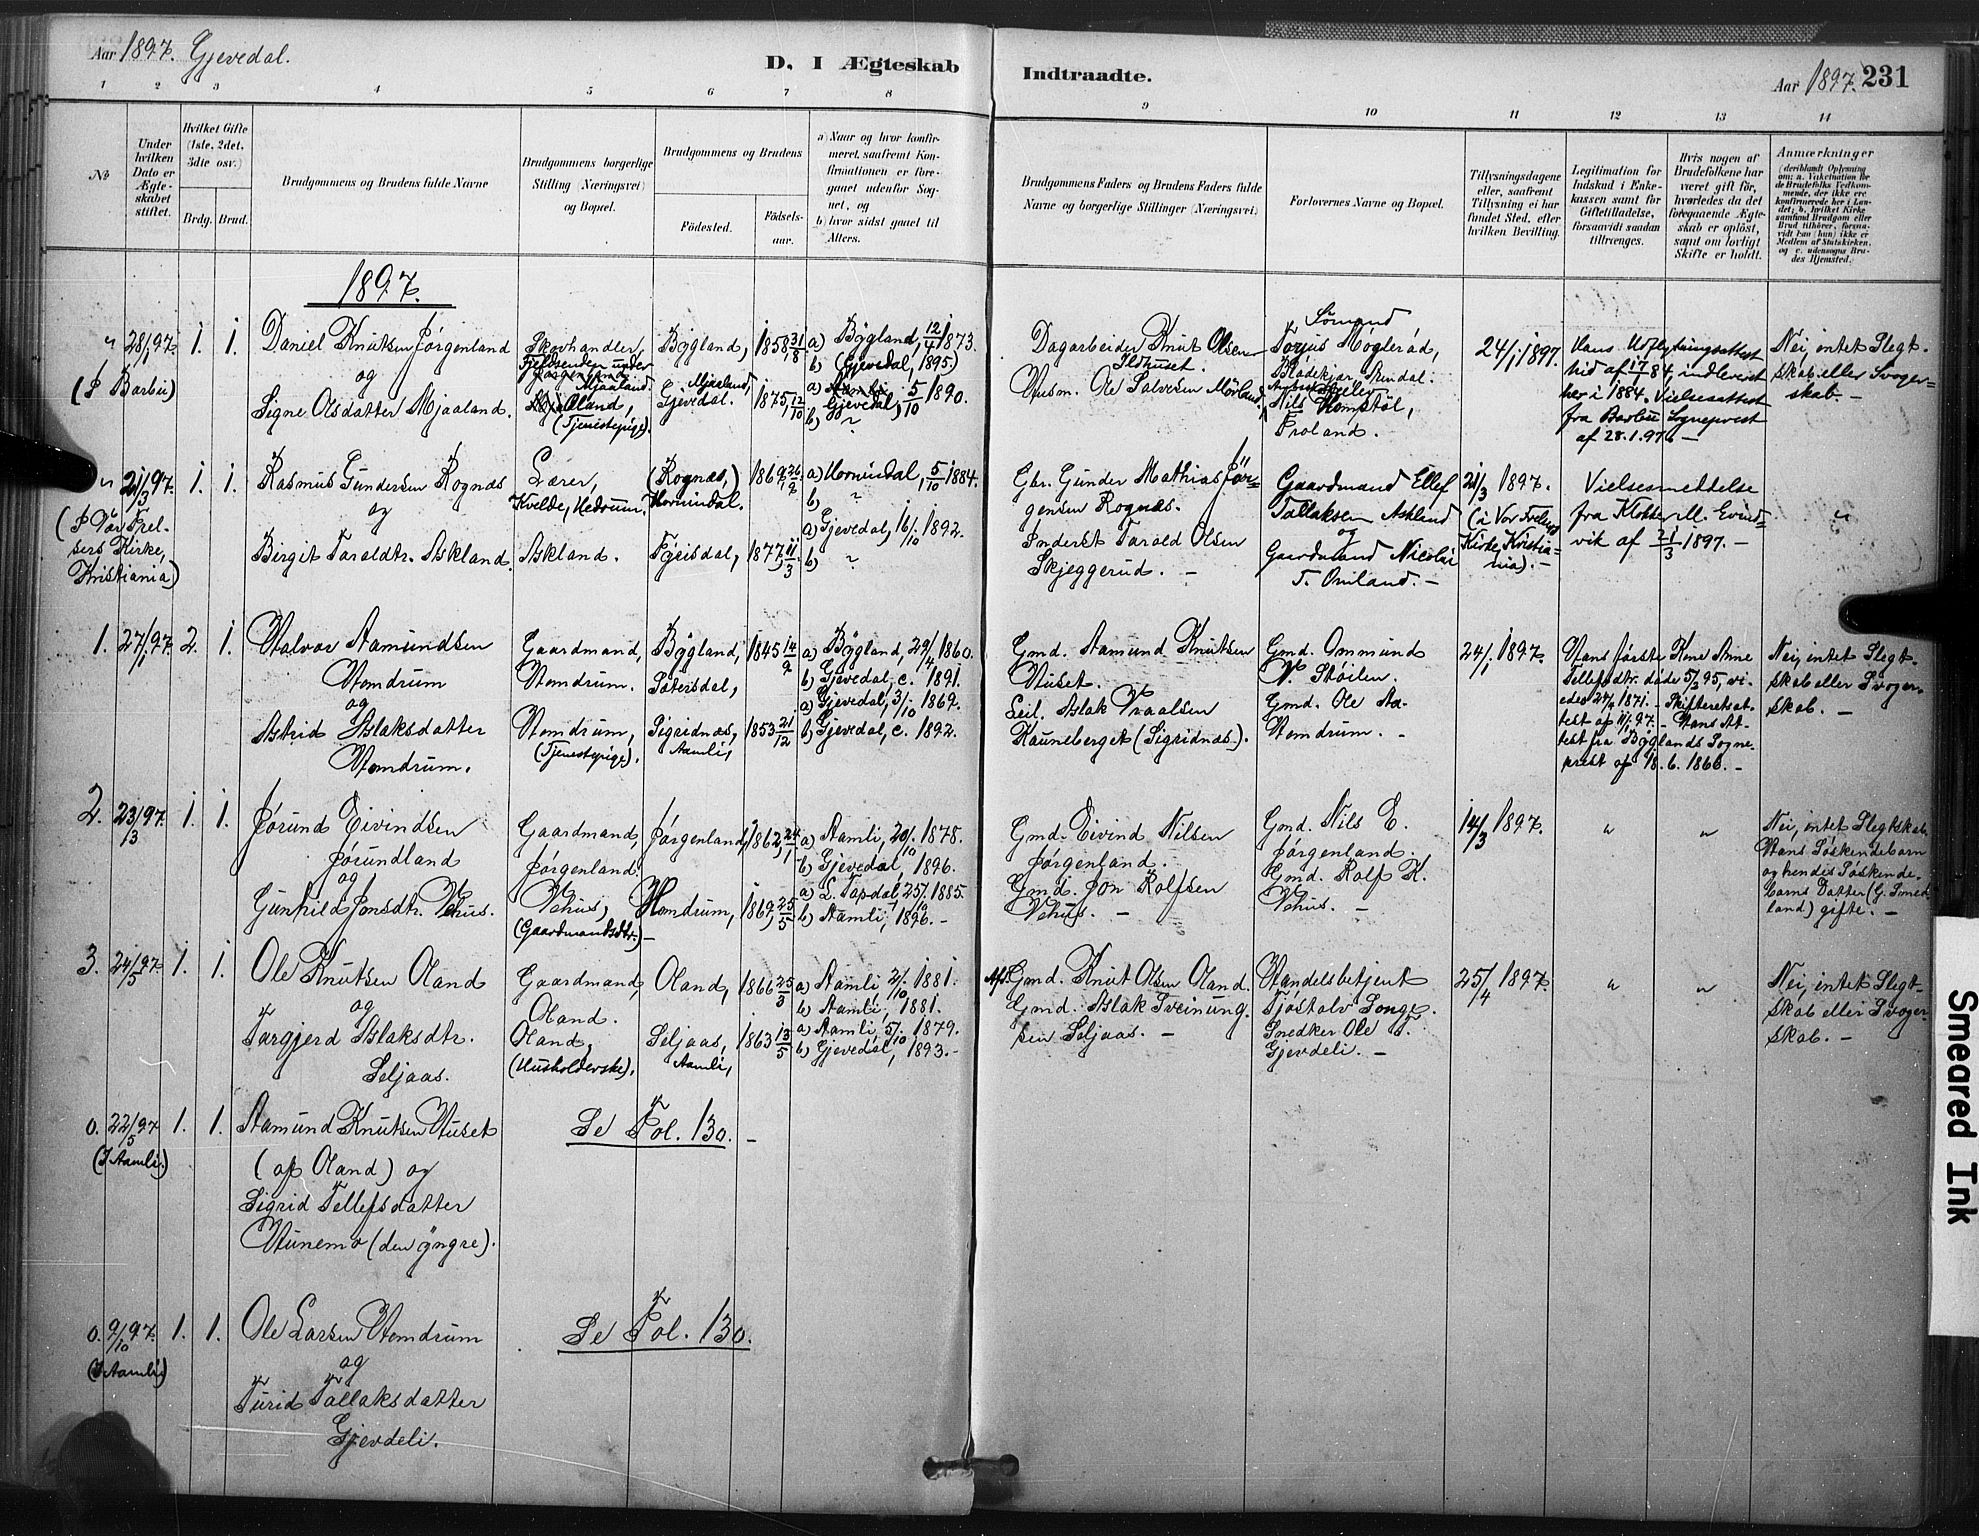 Aar 1897. Gjevedal.
D. I Ægteskab Indtraadte.
Aar 1897. 231
1 2 3 4 5 6 7 8 9 10 11 12 13 14
No
Under hvilken Dato er Ægteskabet stiftet.
Hvilket Gifte (1ste, 2det, 3die osv.)
Brdg. Brud.
Brudgommens og Brudens fulde Navne
Brudgommens borgerlige Stilling (Næringsvei) og Bopæl.
Brudgommens og Brudens
Födested. Födselsaar.
a) Naar og hvor konfirmeret, saafremt Konfirmationen er foregaaet udenfor Sognet, og
b) hvor sidst gaaet til Alters.
Brudgommens Faders og Brudens Faders fulde Navne og borgerlige Stillinger (Næringsvei)
Forlovernes Navne og Bopæl.
Tillysningsdagene eller, saafremt Tillysning ei har fundet Sted, efter hvilken Bevilling.
Legitimation for Indskud i Enkekassen samt for Giftetilladelse, forsaavidt saadan tiltrænges.
Hvis nogen af Brudefolkene har været gift för, hvorledes da det foregaaende Ægteskab er oplöst, samt om lovligt Skifte er holdt.
Anmærkninger
(deriblandt Oplysning om: a. Vakcination for de Brudefolks Vedkommende, der ikke ere konfirmerede her i Landet; b. hvilket Kirkesamfund Brudgom eller Brud tilhörer, forsaavidt han (hun) ikke er Medlem af Statskirken, og c. udensogns Brudes Hjemsted.)
1897.
" 28/1 97. 1. 1.
(I Barbu)
Daniel Knutsen Jörgenland
og
Signe Olsdatter Mjaaland.
Skovhandler,
Mjaaland
(Tjenestepige).
Bygland, 1858 31/8
Mjaaland, Gjevedal. 1875, 12/10
a) Bygland, 12/4 1873.
b) (Gjevedal, 1895)
a) Gjevedal, 5/10 1890.
b) "
Dagarbeider Knut Olsen
Husm. Ole Salvesen Mörland
Sömand
Torjus Moglerød,
Blödekjær Arendal.
Nils Homstöl,
Froland.
24/1 1897.
Hans Udflytningsattest hid af 17/7 84, indleveret her i 1884. Vielsesattest fra Barbu Sogneprest af 28.1.97. –
Nei, intet Slegtskab eller Svogerskab. –
" 21/3 97. 1. 1.
(I Vor Frelsers Kirke, Kristiania)
Rasmus Gundersen Rognæs
og
Birgit Taraldtr. Askland.
Lærer,
Kvelde, Hedrum.
Askland.
(Rognæs,) Hornindal. 1869, 26/9
Fyrisdal, 1877, 11/3
a) Hornindal, 5/10 1884.
b) "
a) Gjevedal, 16/10 1892.
b) "
Gbr. Gunder Mathias Jörgensen Rognæs.
Inderst Tarald Olsen
Skjeggerud. –
Gaardmand Ellef
Tallaksen Askland
og
Gaardmand Nicolai
T. Omland. –
21/3 1897.
(i Vor Frelsers Kirke, Kristiania). –
Vielsesmeddelse fra Klokker M. Evindvik af 21/3 1897. –
"
1. 27/1 97. 2. 1.
Halvor Aamundsen
Homdrum
og
Astrid Aslaksdatter
Homdrum.
Gaardmand,
Homdrum.
Homdrum,
(Tjenestepige).
Bygland, Sætersdal, 1845 14/9
Sigridnæs, Aamli, 1853 21/12
a) Bygland, 29/4 1860.
b) Gjevedal, c. 1891.
a) Gjevedal, 3/10 1869.
b) Gjevedal, c. 1892.
Gmd. Aamund Knutsen
Huset.
Leil. Aslak Vraalsen
Rauneberget (Sigridnæs). –
Gmd. Ommund
N. Stöilen.
Gmd. Ole Aa.
Homdrum. –
24/1 1897.
Hans förste Kone Anne Tellefsdtr. döde 5/3 95, viedes 24/9 1871. – Skifteretsattest af 11/1 97. – Hans Attest fra Byglands Sogneprest af 18.6.1866. –
Nei, intet Slegtskab eller Svogerskab. –
2. 23/3 97. 1. 1.
Jörund Eivindsen
Jörundland
og
Gunhild Jonsdtr. Vehus.
Gaardmand,
Jörgenland.
Vehus,
(Gaardmandsdtr.) –
Jörgenland, 1862, 24/1
Homdrum, 1869, 25/5
a) Aamli, 20/10 1878.
b) Gjevedal, 1896.
a) L. Topdal, 25/10 1885.
b) Aamli, 1896. –
Gmd. Eivind Nilsen
Jörgenland.
Gmd. Jon Rolfsen
Vehus. –
Gmd. Nils E.
Jörgenland.
Gmd. Rolf K.
Vehus. –
14/3 1897.
" "
Nei, intet Slegtskab. Hans Söskendebarn og hendes Söskendebarns Datter (G. Smedland) gifte. –
3. 24/5 97. 1. 1.
Ole Knutsen Oland
og
Targjerd Aslaksdtr.
Seljaas.
Gaardmand,
Oland.
Oland,
(Husholderske).
Oland, 1866 25/3
Seljaas, Aamli, 1863 13/5
a) Aamli, 2/10 1881.
b) Aamli, 1881.
a) Aamli, 5/10 1879.
b) Gjevedal, 1893. –
Afd. Gmd. Knut Olsen Oland.
Gmd. Aslak Sveinungsen Seljaas. –
Handelsbetjent
Tjöstolv Songe.
Snedker Ole T.
Gjevdeli. –
25/4 1897.
" "
Nei, intet Slegtskab eller Svogerskab. –
0. 22/5 97. 1. 1.
(I Aamli.)
Aamund Knutsen Huset
(af Oland) og
Sigrid Tellefsdatter
Hunemo (den yngre).
Se Fol. 130. –
0. 9/10 97. 1. 1.
(I Aamli)
Ole Larsen Homdrum
og
Turid Tallaksdatter
Gjevdeli.
Se Fol. 130.
Smeared Ink